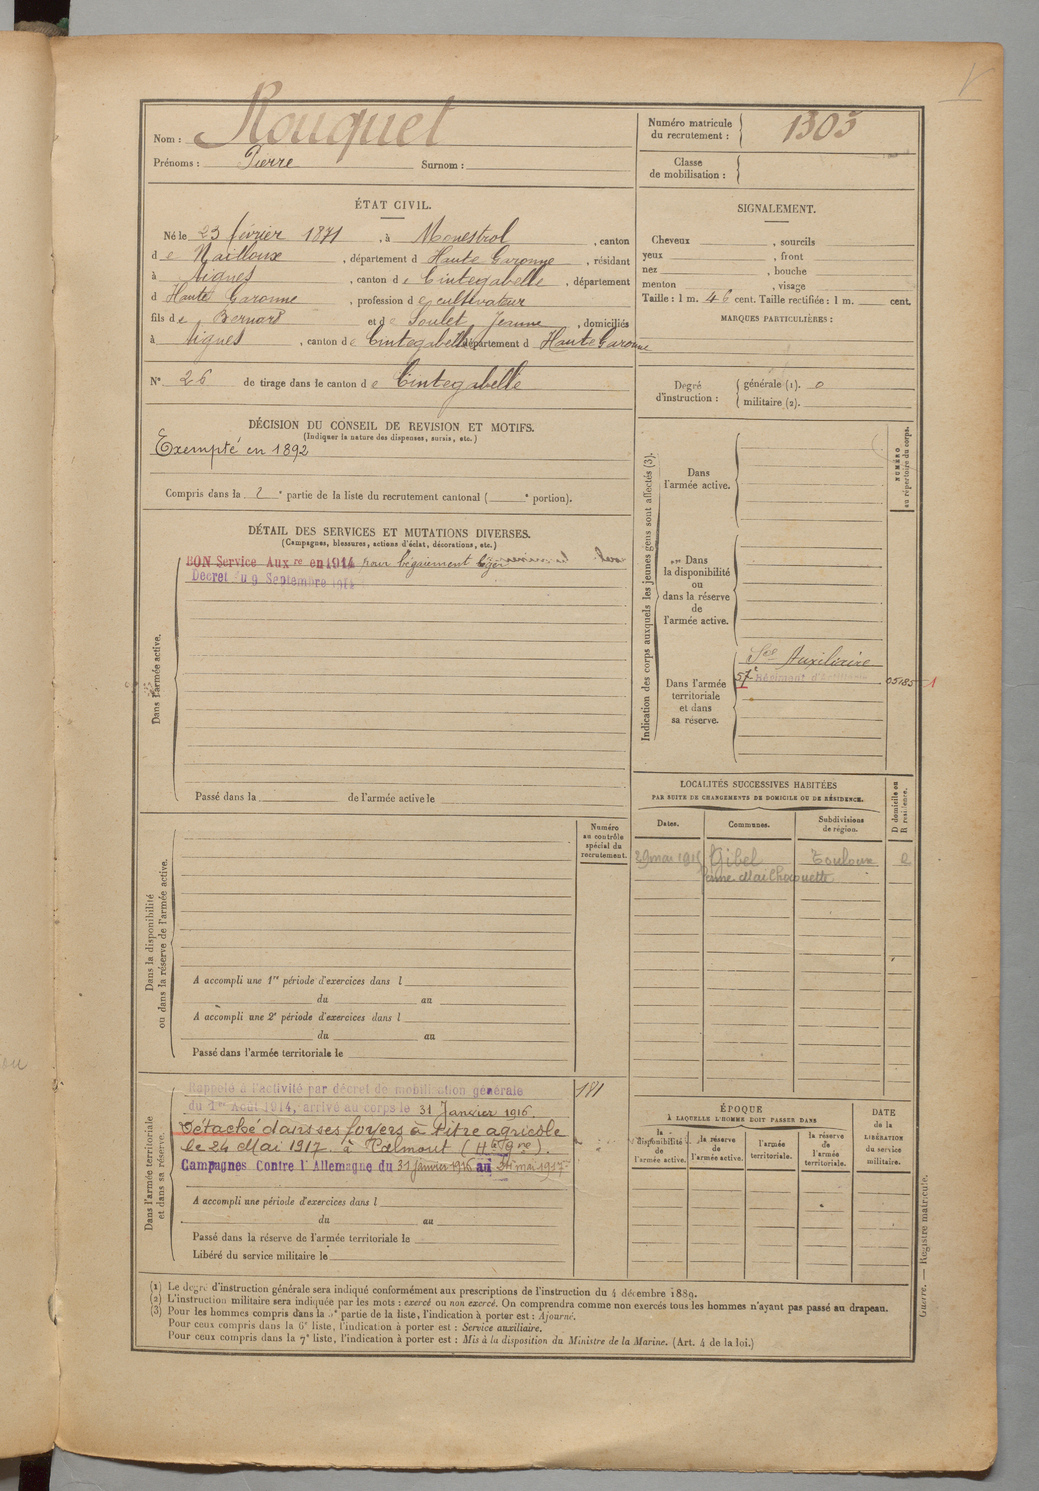 Nom : Rouquet
Prénoms : Pierre Surnom :
Numéro matricule du recrutement : 1303
Classe de mobilisation :
ÉTAT CIVIL.
Né le 23 février 1871, à Monestrol, canton
d e Nailloux, département d Haute Garonne, résidant
à Aignes, canton d e Cintegabelle, département
d Haute Garonne, profession d e cultivateur
fils d e Bernard et d e Soulet, Jeanne, domiciliés
à Aignes, canton d e Cintegabelle, département d Haute Garonne
N° 26 de tirage dans le canton d e Cintegabelle
SIGNALEMENT.
Cheveux , sourcils
yeux , front
nez , bouche
menton , visage
Taille : 1 m. 46 cent. Taille rectifiée : 1 m. cent.
MARQUES PARTICULIÈRES :
Degré d'instruction : générale (1). 0
militaire (2).
DÉCISION DU CONSEIL DE REVISION ET MOTIFS.
(Indiquer la nature des dispenses, sursis, etc.)
Exempté en 1892
Compris dans la e partie de la liste du recrutement cantonal ( e portion).
DÉTAIL DES SERVICES ET MUTATIONS DIVERSES.
(Campagnes, blessures, actions d'éclat, décorations, etc.)
Dans l'armée active.
BON Service Aux re en 1914 pour bégaiement léger
Décret du 9 Septembre 1914
Passé dans la de l'armée active le
Indication des corps auxquels les jeunes gens sont affectés (3).
NUMÉRO au répertoire du corps.
Dans l'armée active.
Dans la disponibilité ou dans la réserve de l'armée active.
Dans l'armée territoriale et dans sa réserve.
Ser Auxiliaire
57e Régiment d'Artillerie
05185
LOCALITÉS SUCCESSIVES HABITÉES
PAR SUITE DE CHANGEMENTS DE DOMICILE OU DE RÉSIDENCE.
Dates. Communes. Subdivisions de région. D domicile ou R résidence.
29 mai 1915 Gibel Toulouse
Dans la disponibilité ou dans la réserve de l'armée active.
Numéro au contrôle spécial du recrutement.
A accompli une 1re période d'exercices dans l
du au
A accompli une 2e période d'exercices dans l
du au
Passé dans l'armée territoriale le
Dans l'armée territoriale et dans sa réserve.
Rappelé à l'activité par décret de mobilisation générale
du 1er Août 1914, arrivé au corps le 31 Janvier 1916.
181
Détaché dans ses foyers à titre agricole
le 24 Mai 1917. à Calmont (Hte Gne).
Campagnes Contre l'Allemagne du 31 janvier 1916 au 24 mai 1917
A accompli une période d'exercices dans l
du au
Passé dans la réserve de l'armée territoriale le
Libéré du service militaire le
ÉPOQUE
À LAQUELLE L'HOMME DOIT PASSER DANS
la disponibilité de l'armée active. la réserve de l'armée active. l'armée territoriale. la réserve de l'armée territoriale.
DATE de la LIBÉRATION du service militaire.
(1) Le degré d'instruction générale sera indiqué conformément aux prescriptions de l'instruction du 4 décembre 1889.
(2) L'instruction militaire sera indiquée par les mots : exercé ou non exercé. On comprendra comme non exercés tous les hommes n'ayant pas passé au drapeau.
(3) Pour les hommes compris dans la 5e partie de la liste, l'indication à porter est : Ajourné.
Pour ceux compris dans la 6e liste, l'indication à porter est : Service auxiliaire.
Pour ceux compris dans la 7e liste, l'indication à porter est : Mis à la disposition du Ministre de la Marine. (Art. 4 de la loi.)
Guerre. — Registre matricule.